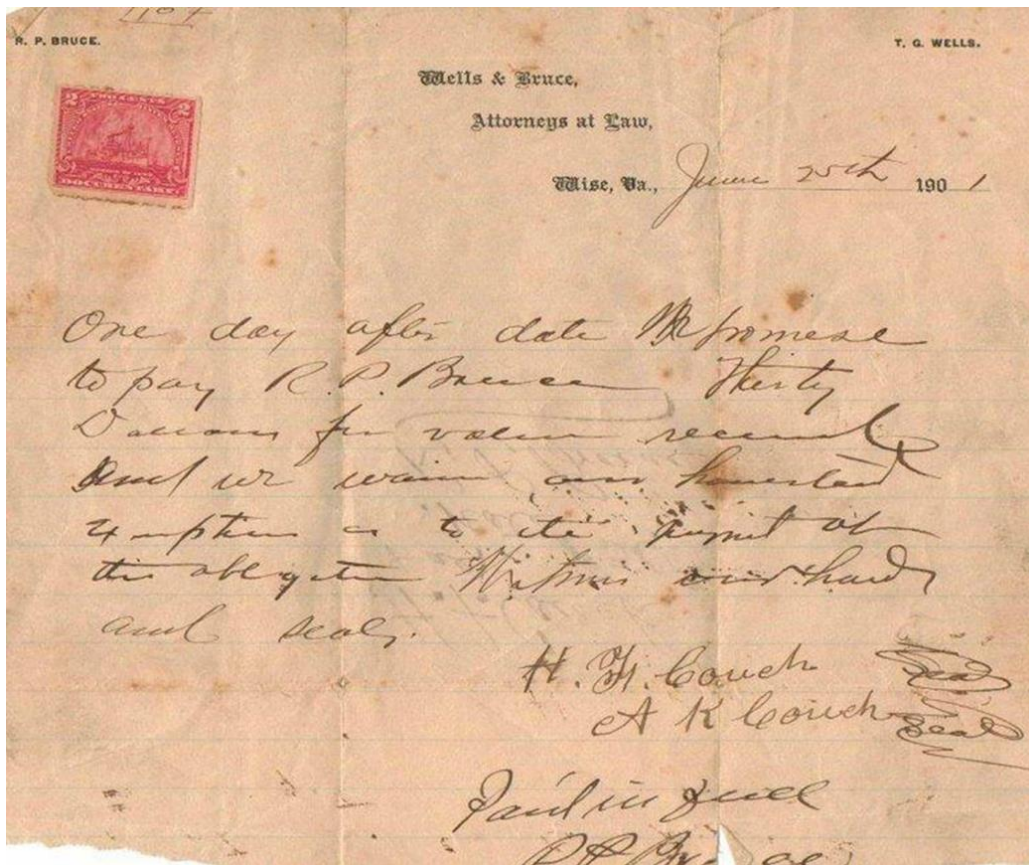 R. P. BRUCE.
T. G. WELLS.
Wells & Bruce,
Attorneys at Law,
Wise, Va., June 25th 1901
2 TWO CENTS 2
DOCUMENTARY
One day after date We promise
to pay R. P. Bruce Thirty
Dollars for value received
And we waive our homestead
exemption as to the payment of
this obligation Witness our hands
and seals.
H. H. Couch Seal
A K Couch Seal
Paid in full
R P Bruce